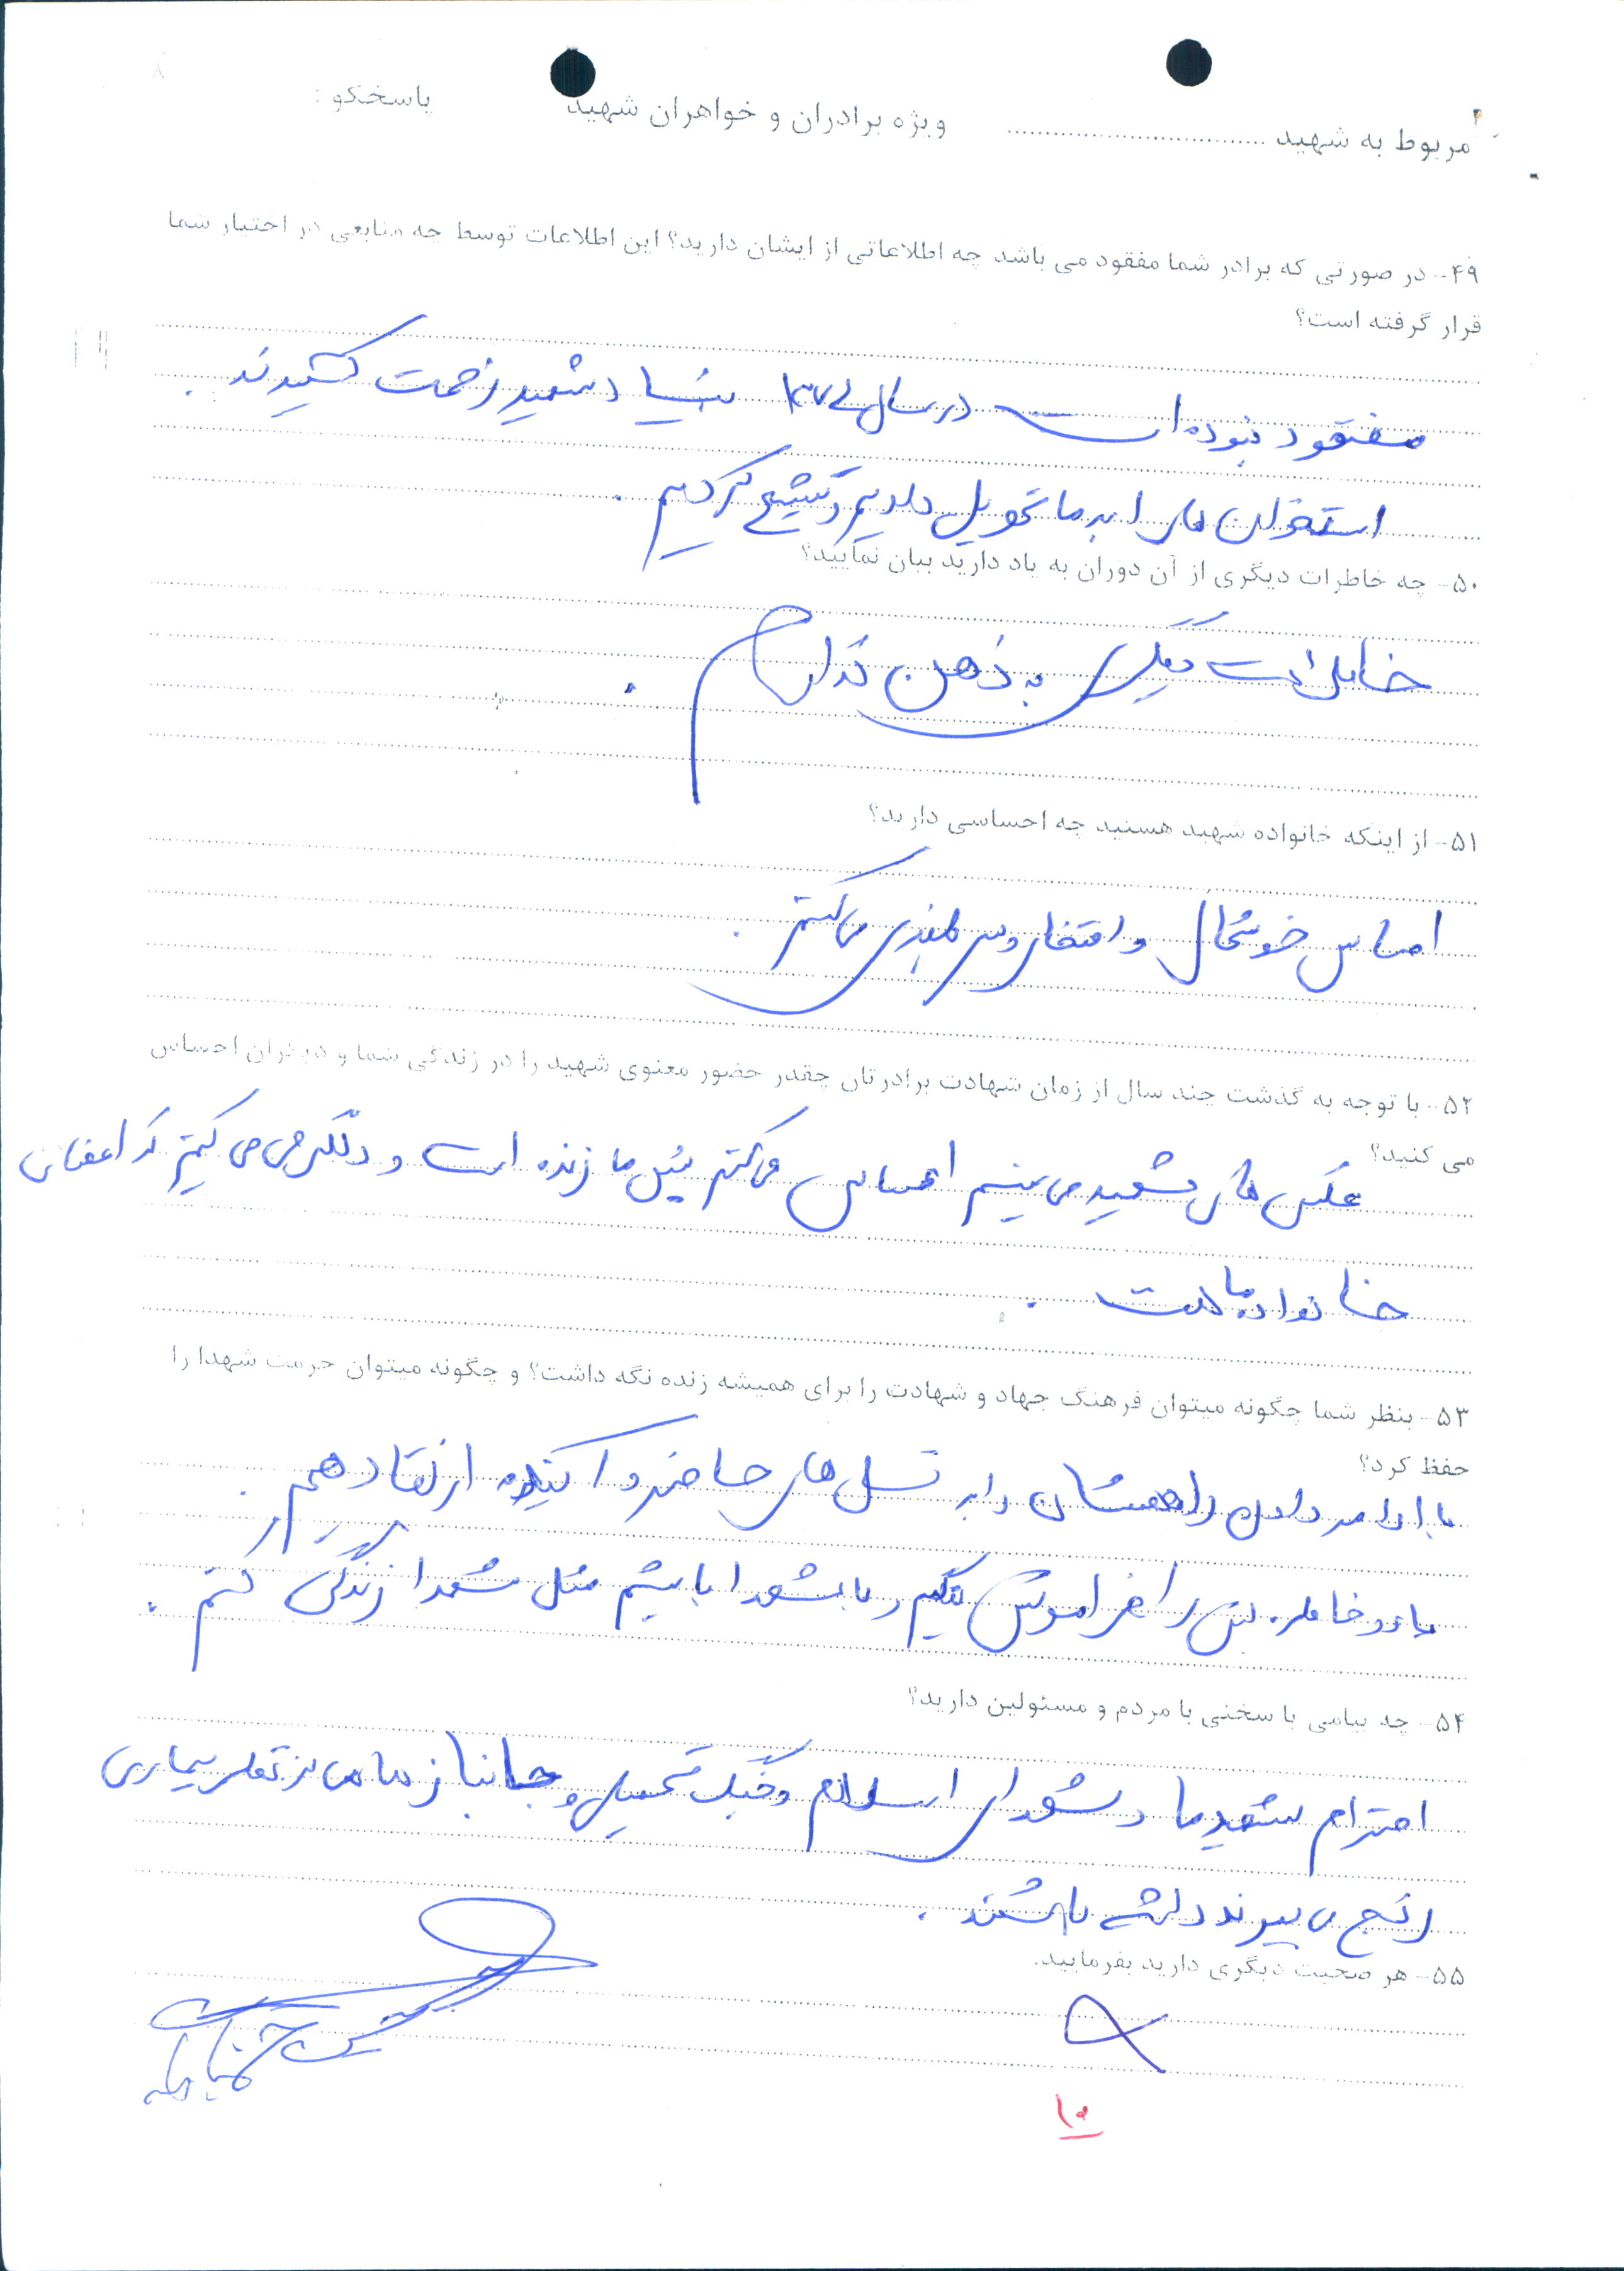 مربوط به شهید .............................. ویژه برادران و خواهران شهید پاسخگو :
۴۹- در صورتی که برادر شما مفقود می باشد چه اطلاعاتی از ایشان دارید؟ این اطلاعات توسط چه منابعی در اختیار شما
قرار گرفته است؟
مفقود نبوده است در سال بنیاد شهید زحمت کشیدند .
استخوان های را به ما تحویل دادیم و تشییع کردیم .
۵۰- چه خاطرات دیگری از آن دوران به یاد دارید بیان نمایید؟
خاطرات دیگری به ذهن ندارم .
۵۱- از اینکه خانواده شهید هستید چه احساسی دارید؟
احساس خوشحال و افتخار و سر بلندی می کنم .
۵۲- با توجه به گذشت چند سال از زمان شهادت برادرتان چقدر حضور معنوی شهید را در زندگی شما و دیگران احساس
می کنید؟
عکس های شهید می بینیم احساس می کنم پیش ما زنده است و می کنیم که اعضای
خانواده ما هست .
۵۳- بنظر شما چگونه میتوان فرهنگ جهاد و شهادت را برای همیشه زنده نگه داشت؟ و چگونه میتوان حرمت شهدا را
حفظ کرد؟
با ادامه دادن راهشان را به نسل های حاضر و آینده ارتقا دهیم .
یاد و خاطره را فراموش نکنیم و با شهدا باشیم مثل شهدا زندگی کنیم .
۵۴- چه پیامی یا سخنی با مردم و مسئولین دارید؟
احترام شهید ما و شهدای اسلام و جنگ تحمیلی و جانباز ما بیماری
رنج می برند داشته باشند .
۵۵- هر صحبت دیگری دارید بفرمایید.
۱۰